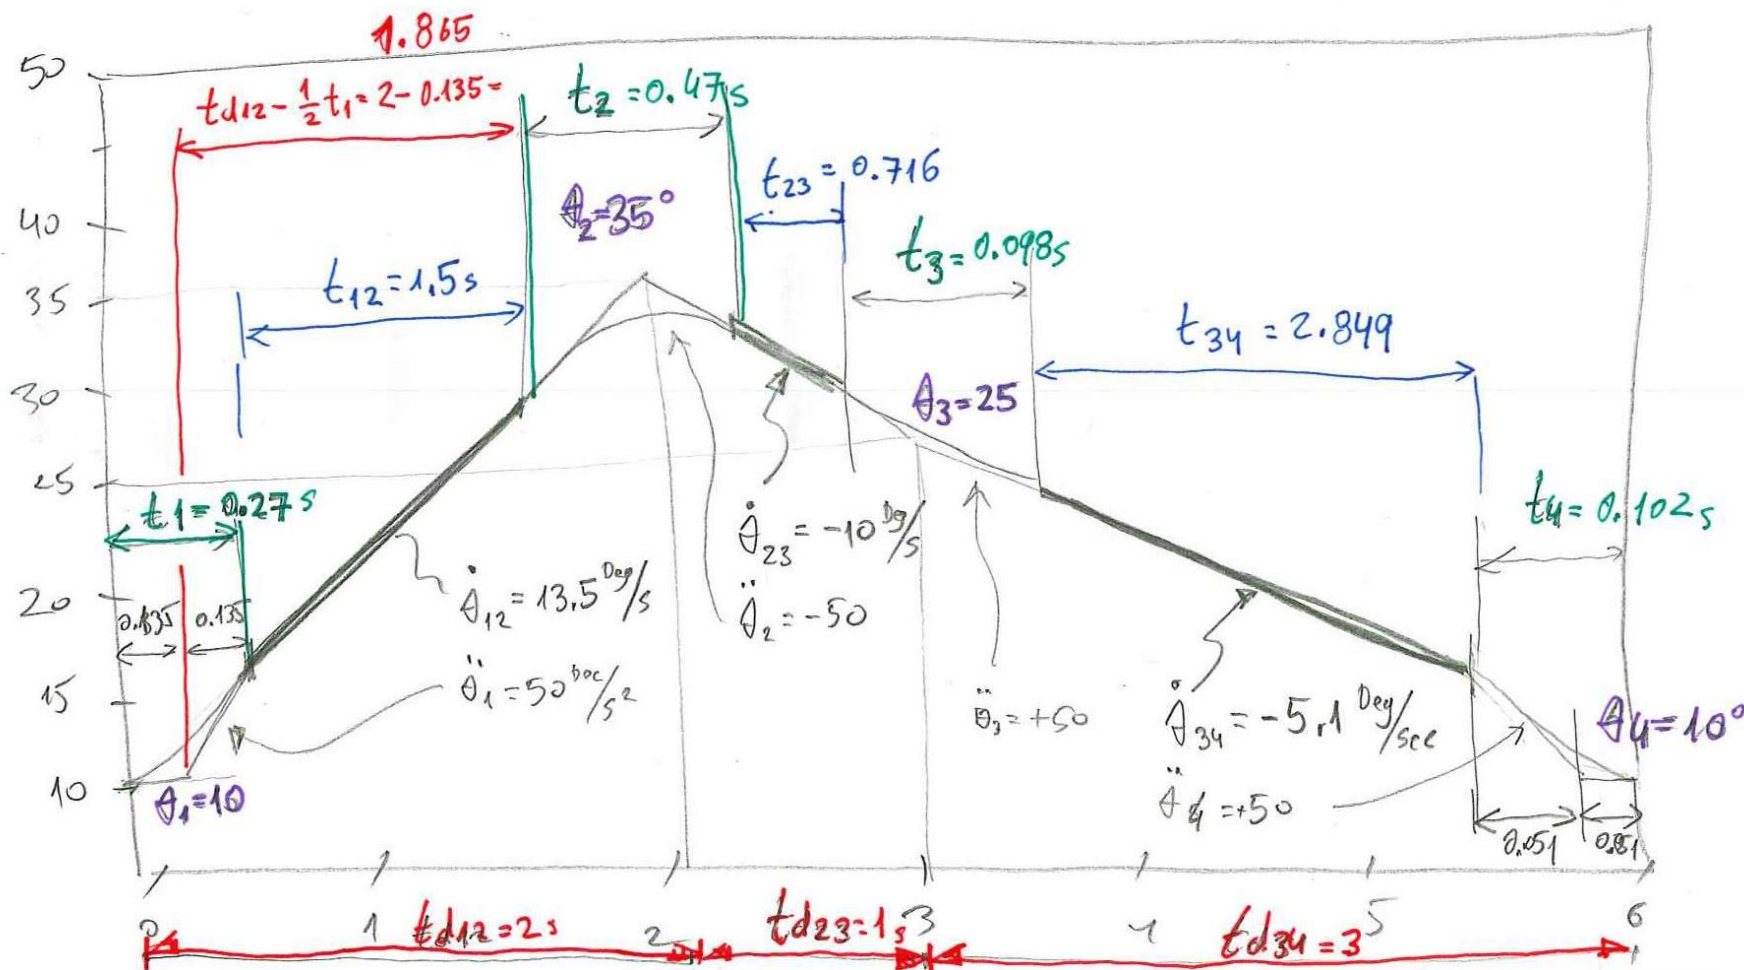 1.865
50
td12 - 1/2 t1 = 2 - 0.135 =
t2 = 0.47s
t23 = 0.716
θ2=35°
40
t3 = 0.098s
t12 = 1.5s
35
t34 = 2.849
30
θ3=25
25
t1 = 0.27s
t4 = 0.102s
θ̇23 = -10 Deg/s
20
0.135
0.135
θ̇12 = 13.5 Deg/s
θ̈2 = -50
15
θ̈1 = 50 Deg/s²
θ̈3 = +50
θ̇34 = -5.1 Deg/sec
θ4=10°
10
θ1=10
θ̈4 = +50
0.051
0.051
0 1 2 3 4 5 6
td12=2s
td23=1s
td34=3